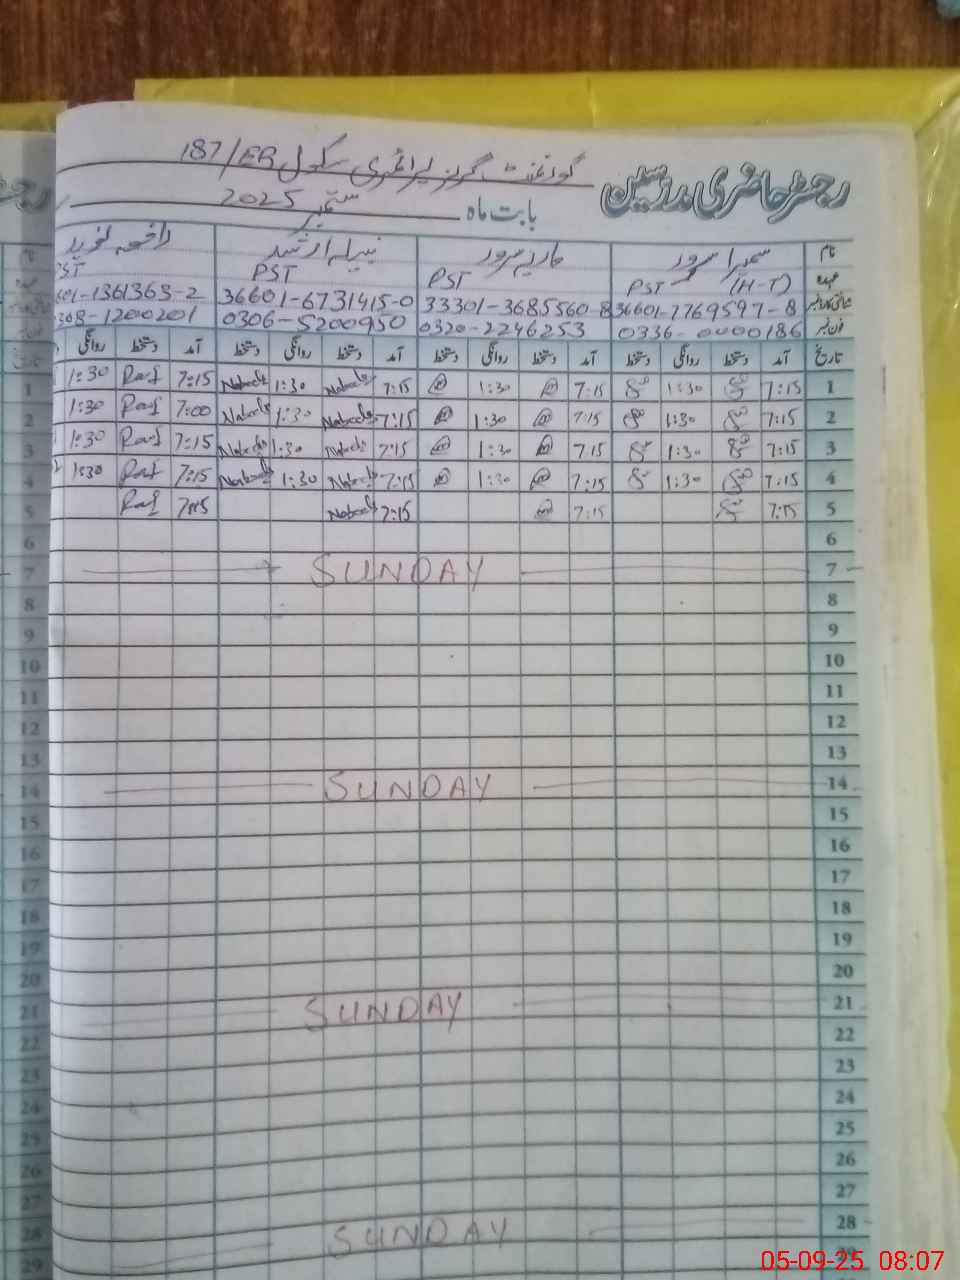 گورنمنٹ گرلز پرائمری سکول 187/EB
رجسٹر حاضری مدرسین
بابت ماہ ستمبر 2025
نام سمیرا سرور ماریہ سرور نبیلہ ارشد نوید
عہدہ PST (H-T) PST PST PST
36601-7769597-8 33301-3685560-8 36601-6731415-0 601-1361363-2
فون نمبر 0336-0000186 0320-2246253 0306-5200950 308-1200201
تاریخ آمد دستخط روانگی دستخط آمد دستخط روانگی دستخط آمد دستخط روانگی دستخط آمد دستخط روانگی
1 7:15 1:30 7:15 1:30 7:15 Nabeela 1:30 Nabeela 7:15 Raf 1:30
2 7:15 1:30 7:15 1:30 7:15 Nabeela 1:30 Nabeela 7:00 Raf 1:30
3 7:15 1:30 7:15 1:30 7:15 Nabeela 1:30 Nabeela 7:15 Raf 1:30
4 7:15 1:30 7:15 1:30 7:15 Nabeela 1:30 Nabeela 7:15 Raf 1:30
5 7:15 7:15 7:15 Nabeela 7:15 Raf
6
7 SUNDAY
8
9
10
11
12
13
14 SUNDAY
15
16
17
18
19
20
21 SUNDAY
22
23
24
25
26
27
28 SUNDAY
29
05-09-25 08:07